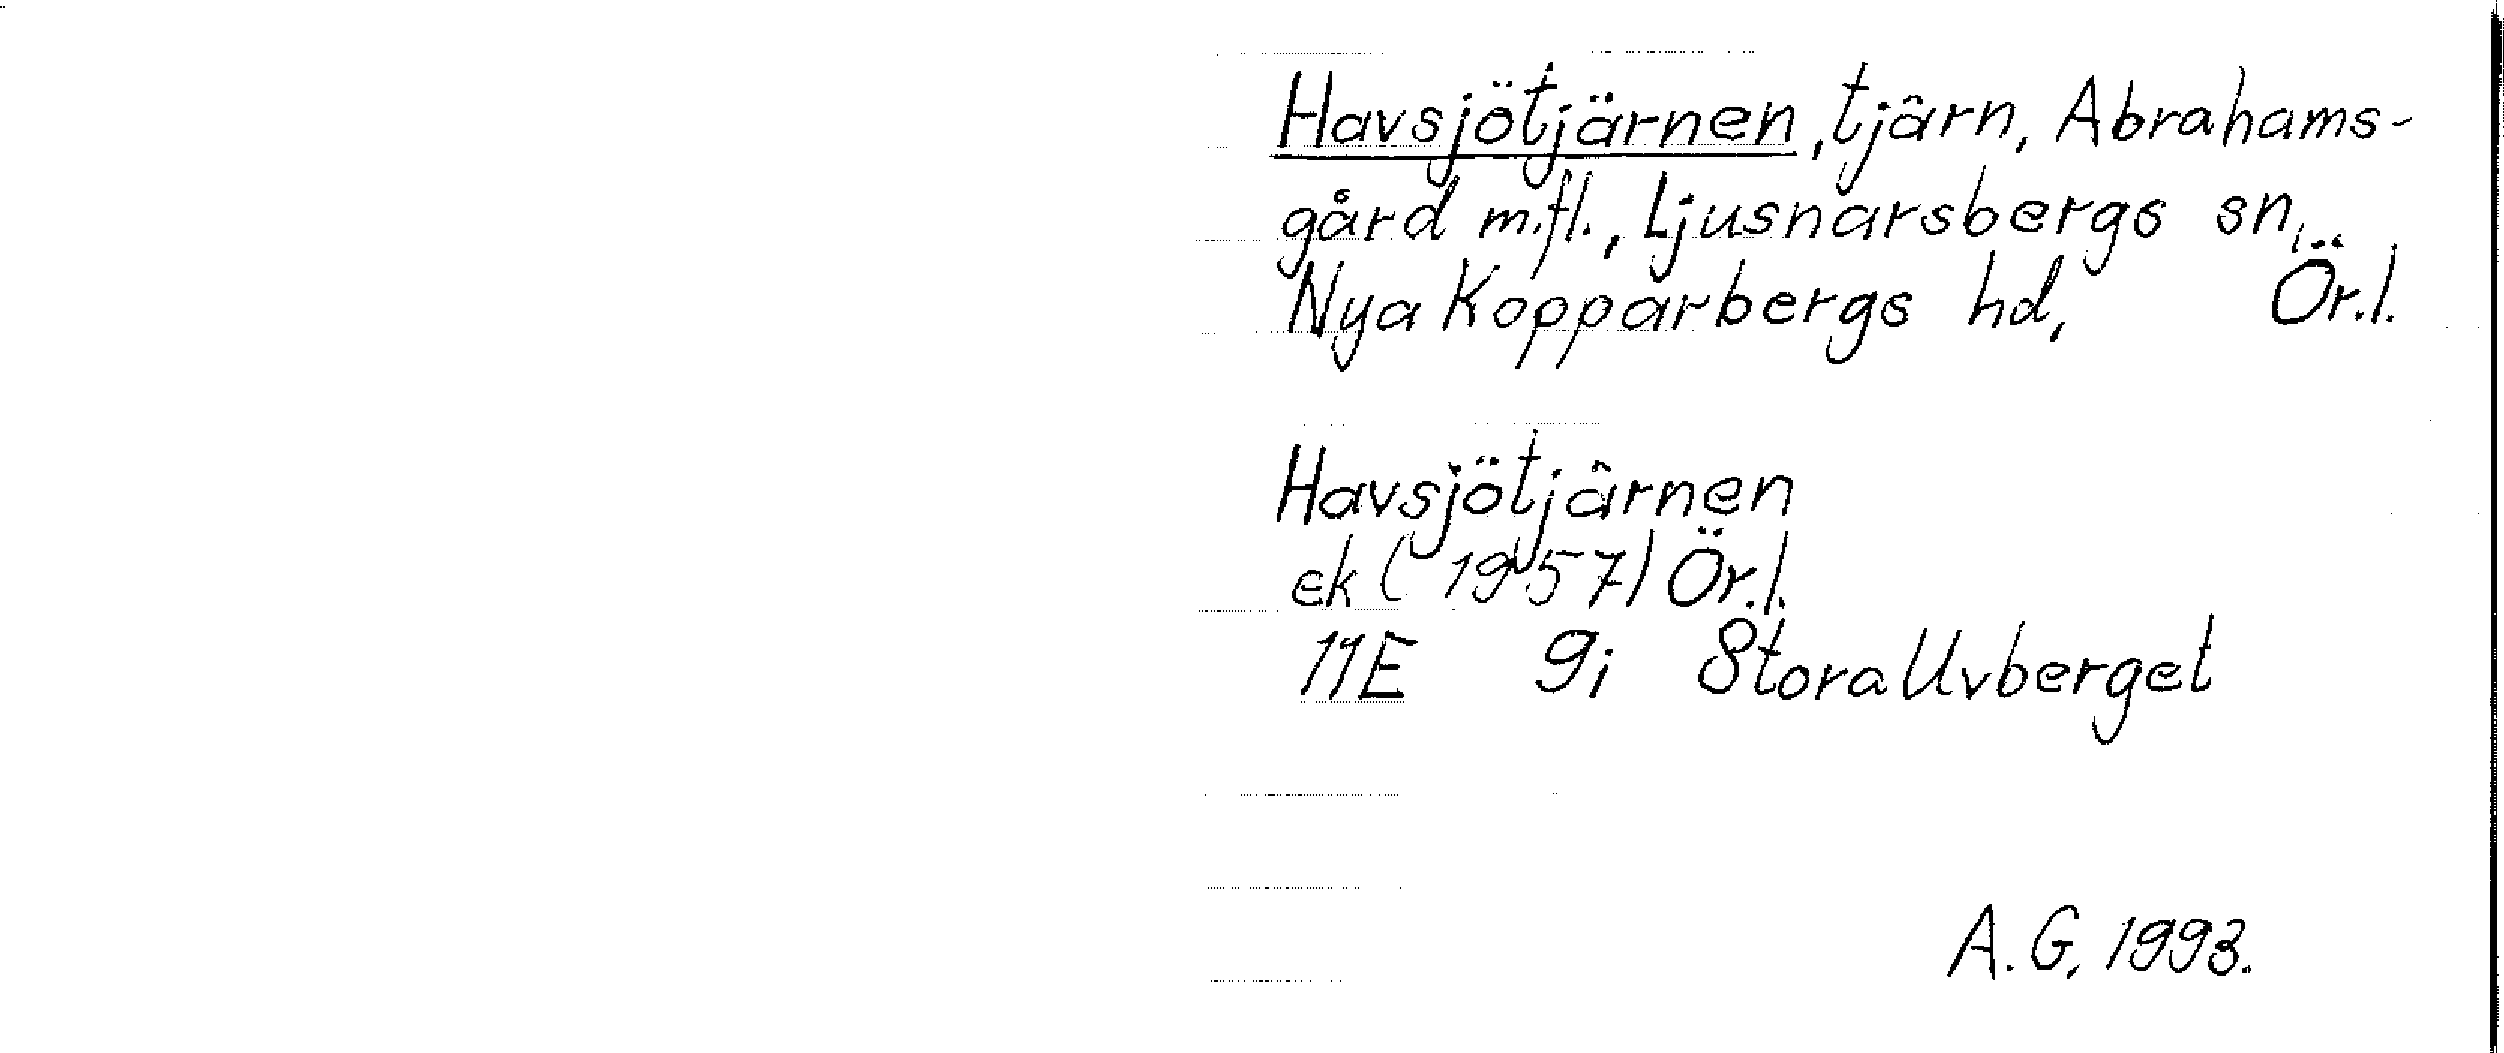 Havsjötjärnen, tjärn, Abrahams-
gård m.fl., Ljusnarsbergs sn,
Nya Kopparbergs hd, Ör.l.
Havsjötjärnen
ek (1957) Ör.l.
11E 9i Stora Uvberget
A.G. 1993.